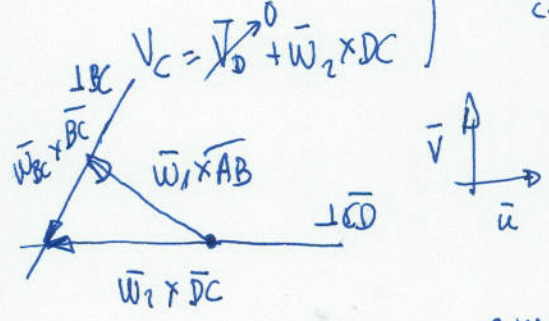 V_C = V̅_D⁰ + ω̅₂ × DC
⊥BC
ω̅_BC × B̅C̅
ω̅₁ × A̅B̅
⊥C̅D̅
ω̅₂ × D̅C̅
V̅
u̅